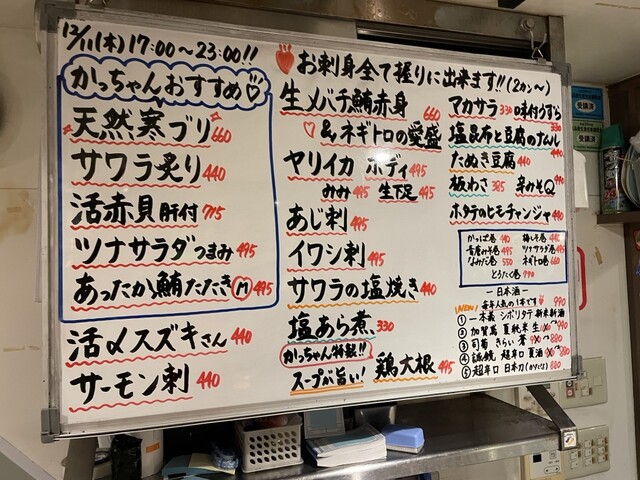 12/11(木)17:00〜23:00!!
かっちゃんおすすめ♡
天然寒ブリ660
サワラ炙り440
活赤貝肝付715
ツナサラダつまみ495
あったか鮪たたきⓂ495
活〆スズキさん440
サーモン刺440
お刺身全て握りに出来ます!!(2カン〜)
生メバチ鮪赤身660
♡&ネギトロの愛盛
ヤリイカ ボディ495
みみ495 生下足495
あじ刺495
イワシ刺495
サワラの塩焼き440
塩あら煮、330
かっちゃん特製!!
スープが旨い! 鶏大根495
アカサラ330 味付うずら330
塩昆布と豆腐のナムル
たぬき豆腐440
板わさ385 辛みそQ
ホタテのヒモチャンジャ440
かっぱ巻440 梅しそ巻440
青唐みそ巻495 ツナサラダ巻495
なみだ巻550 ネギトロ巻660
とろたく巻770
ー日本酒ー
毎年人気の1本です
NEW!
①一本義 シボリタテ新米新酒990
②加賀鳶 夏純米生
③司菊 きらい 蒼
④誠鏡 超辛口 夏酒
⑤超辛口 日本刀(かたな)880
受講済
受講済